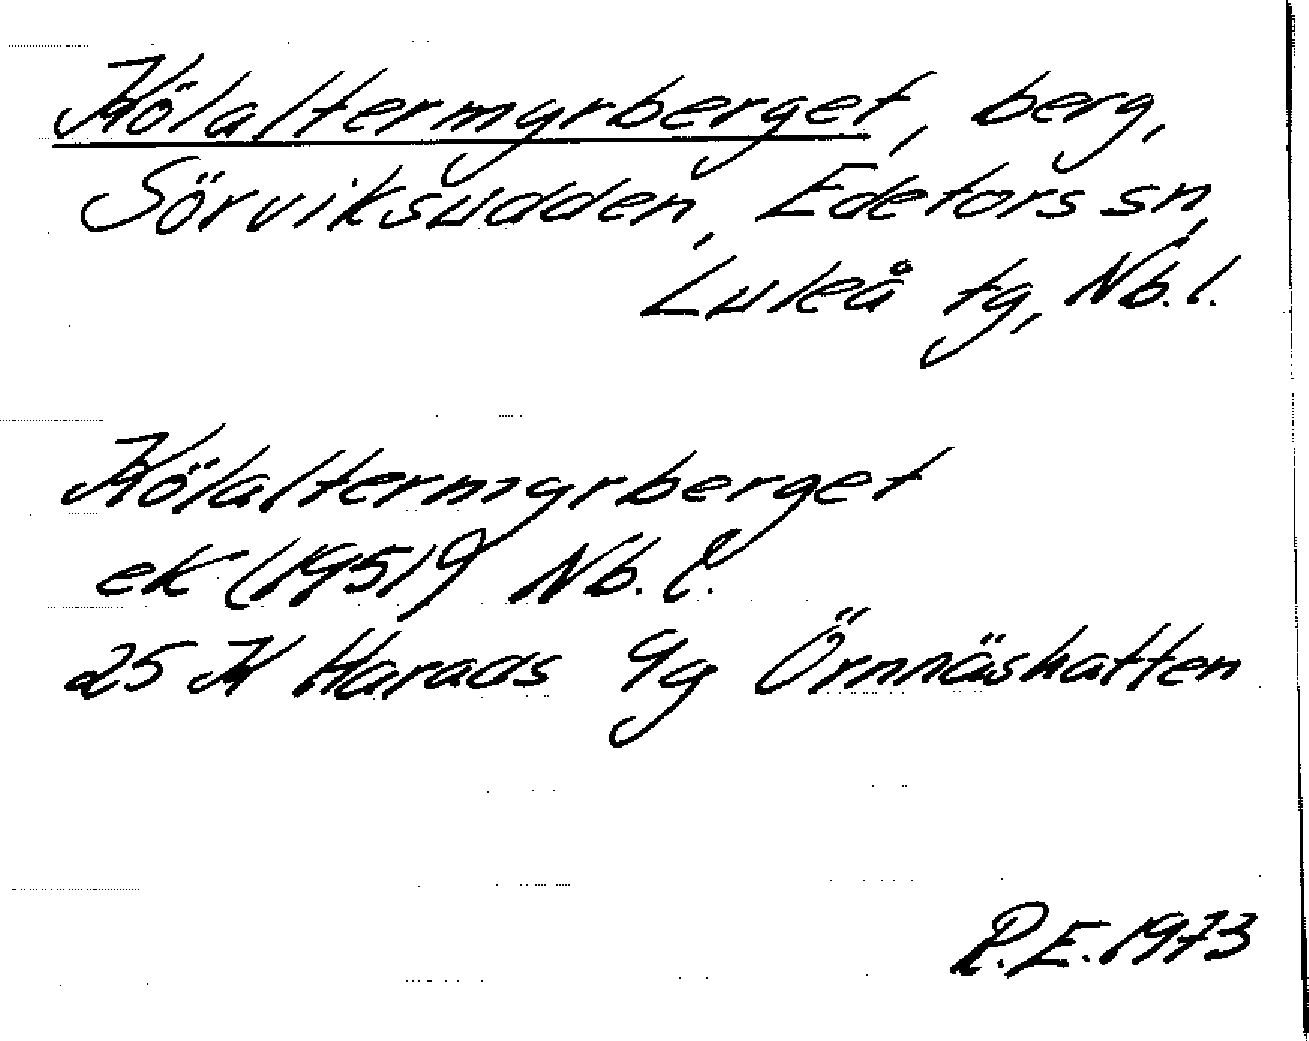 Kölaltermyrberget, berg,
Sörviksudden, Edefors sn,
Luleå tg, Nb. l.
Kölaltermyrberget
ek (1951) Nb. l.
25 K Harads 9g Örnnäshatten
R.E. 1973